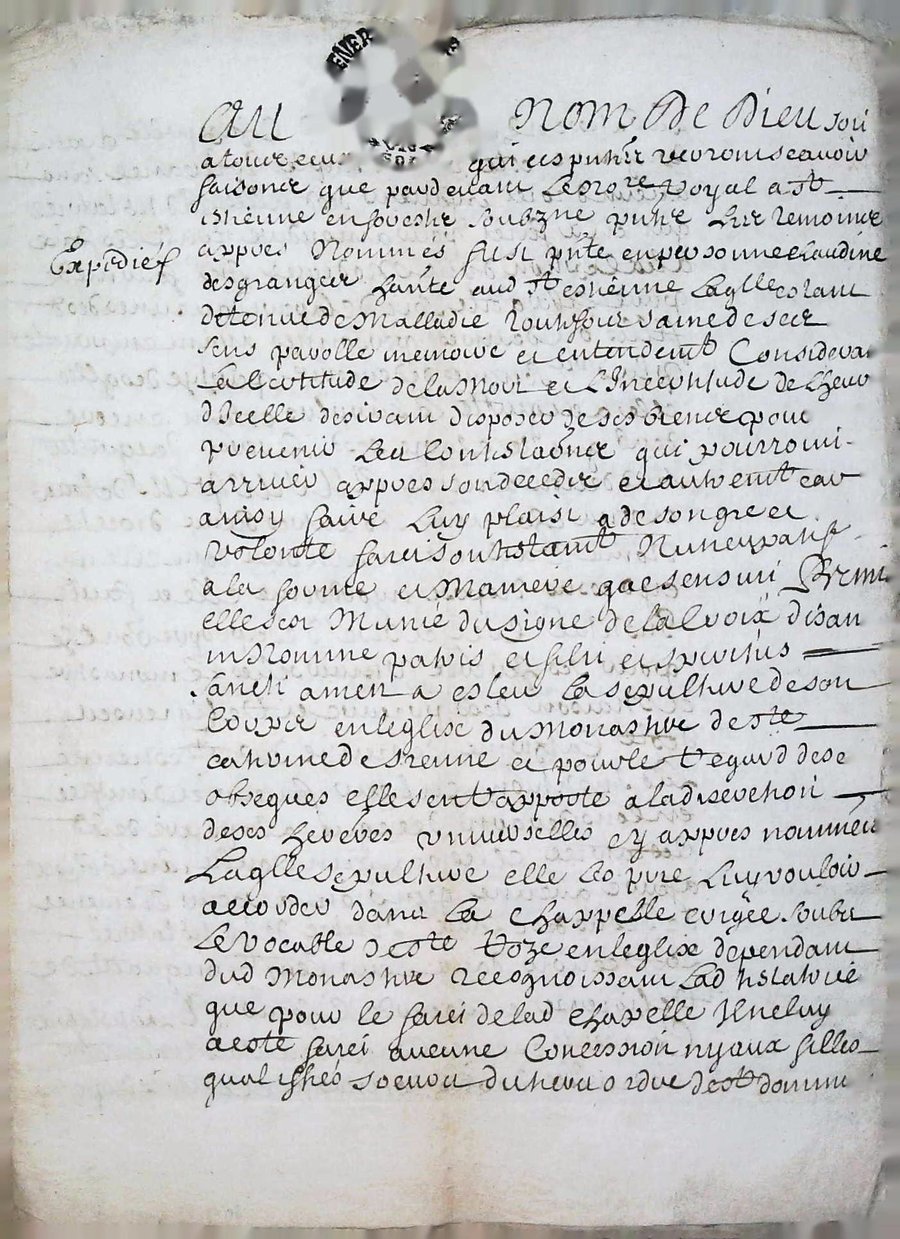 ENER
Au Nom De Dieu soit
a tous ceux qui ces pntes verront scavoir
faisons que pardevant Le no.re Royal a St
Estienne en forestz soubzne pnte Les temoings
appres Nommes fust pnte en personne Claudine
Expédiéf
desgranges hante aud St estienne Laqlle estant
detenue de Malladie Toutesfois saine de ses
sens parolle memoire et entendemt Considerant
La Certitude de la Mort et L'Incertitude de Lheure
d'Icelle desirant disposer de ses biens pour
prevenir Les Contestaõns qui pourroint
arriver appres son decedz et autremt car
ainsy faire Luy plaist a de son gre et
volonte faict son testamt Nuncupatif
a la forme et Maniere que sensuit Premi
ellescst Munie du signe de la Croix disant
in Nomine patris et filii et spiritus
sancti amen a esleu La sepulture de son
Corps en leglise du Monastere de ste
catherine de sienne et pour le regard de se
obseques elle sen rapporte a la discretion
de ses heretes universelles cy appres nommées
Laqlle sepulture elle les prie Luy vouloir
accorder dans La Chappelle erigée soubz
Le vocable de ste Roze en leglise dependant
dud Monastere recognoissant Lad testatrice
que pour le faict de lad chapelle Il ne luy
a este faict aucune Concession ny aux filles
qualiffiés soeurs du tiers ordre de st domini